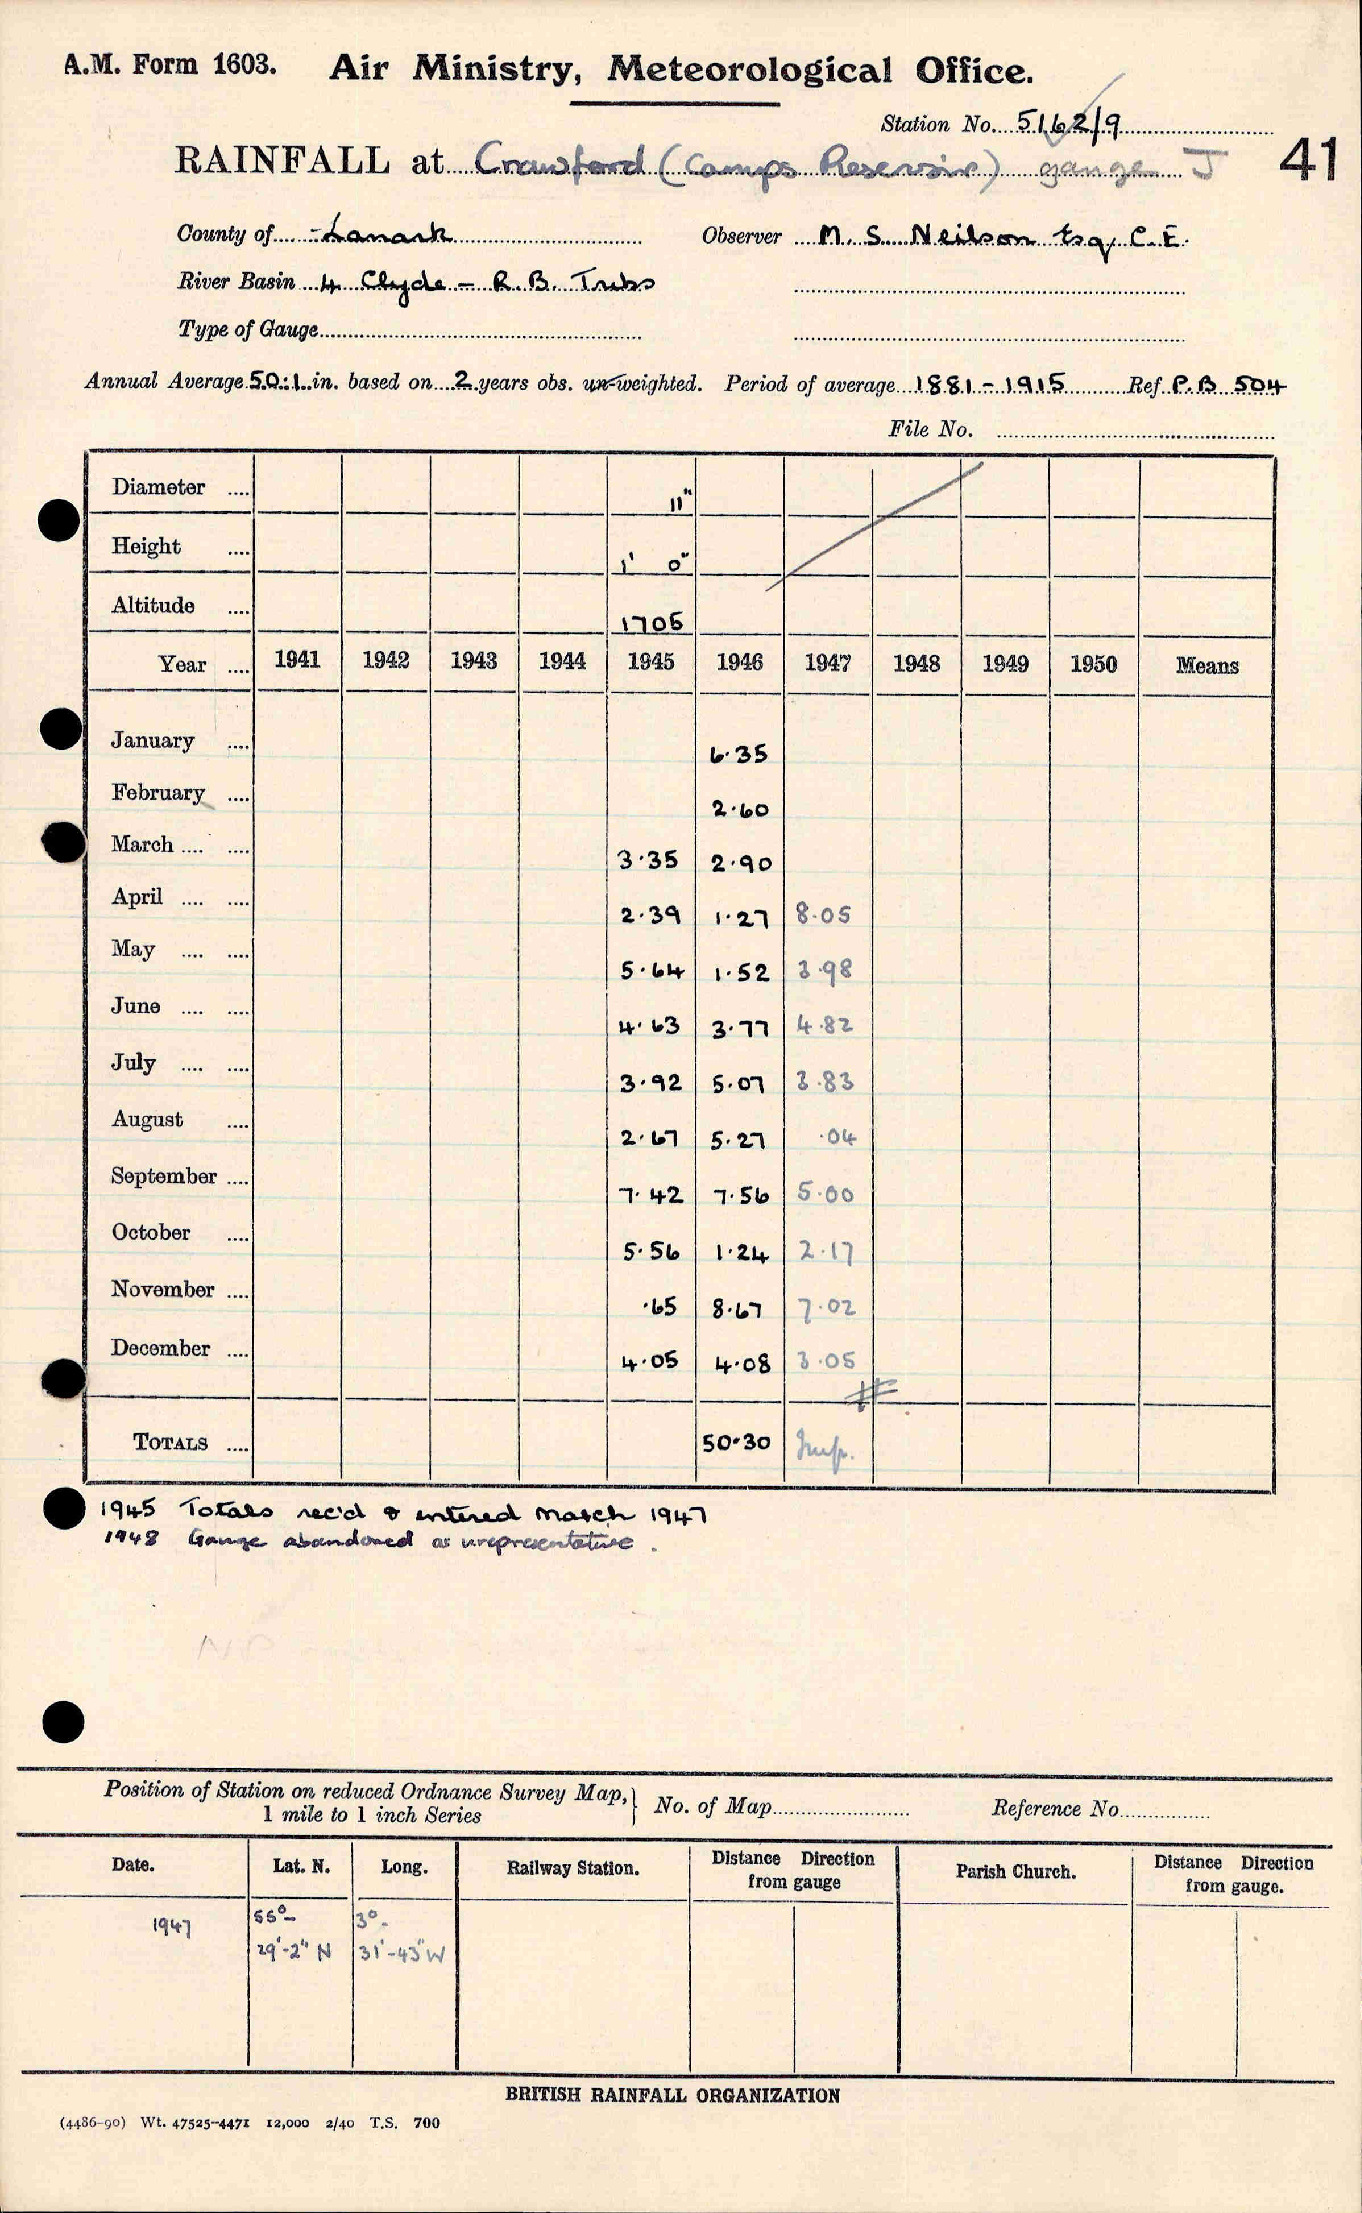 A.M. Form 1603. Air Ministry, Meteorological Office.
Station No. 5162/9
RAINFALL at Crawford (Camps Reservoir) gauge J 41
County of Lanark Observer M. S. Neilson Esq, C.E.
River Basin 4 Clyde - R.B. Tribs
Type of Gauge
Annual Average 50.1 in. based on 2 years obs. un-weighted. Period of average 1881-1915 Ref P.B 504
File No.
Diameter .... 11"
Height .... 1' 0"
Altitude .... 1705
Year .... 1941 1942 1943 1944 1945 1946 1947 1948 1949 1950 Means
January .... 6.35
February .... 2.60
March .... .... 3.35 2.90
April .... .... 2.39 1.27 8.05
May .... .... 5.64 1.52 3.98
June .... .... 4.63 3.77 4.82
July .... .... 3.92 5.07 3.83
August .... 2.67 5.27 .04
September .... 7.42 7.56 5.00
October .... 5.56 1.24 2.17
November .... .65 8.67 7.02
December .... 4.05 4.08 3.05
TOTALS .... 50.30 Imp.
1945 Totals rec'd & entered March 1947
1948 Gauge abandoned as unrepresentative.
Position of Station on reduced Ordnance Survey Map,
1 mile to 1 inch Series
No. of Map Reference No.
Date. Lat. N. Long. Railway Station. Distance Direction from gauge Parish Church. Distance Direction from gauge.
1947 55°- 3°-
29'-2" N 31'-43" W
BRITISH RAINFALL ORGANIZATION
(4486-90) Wt. 47525-4471 12,000 2/40 T.S. 700